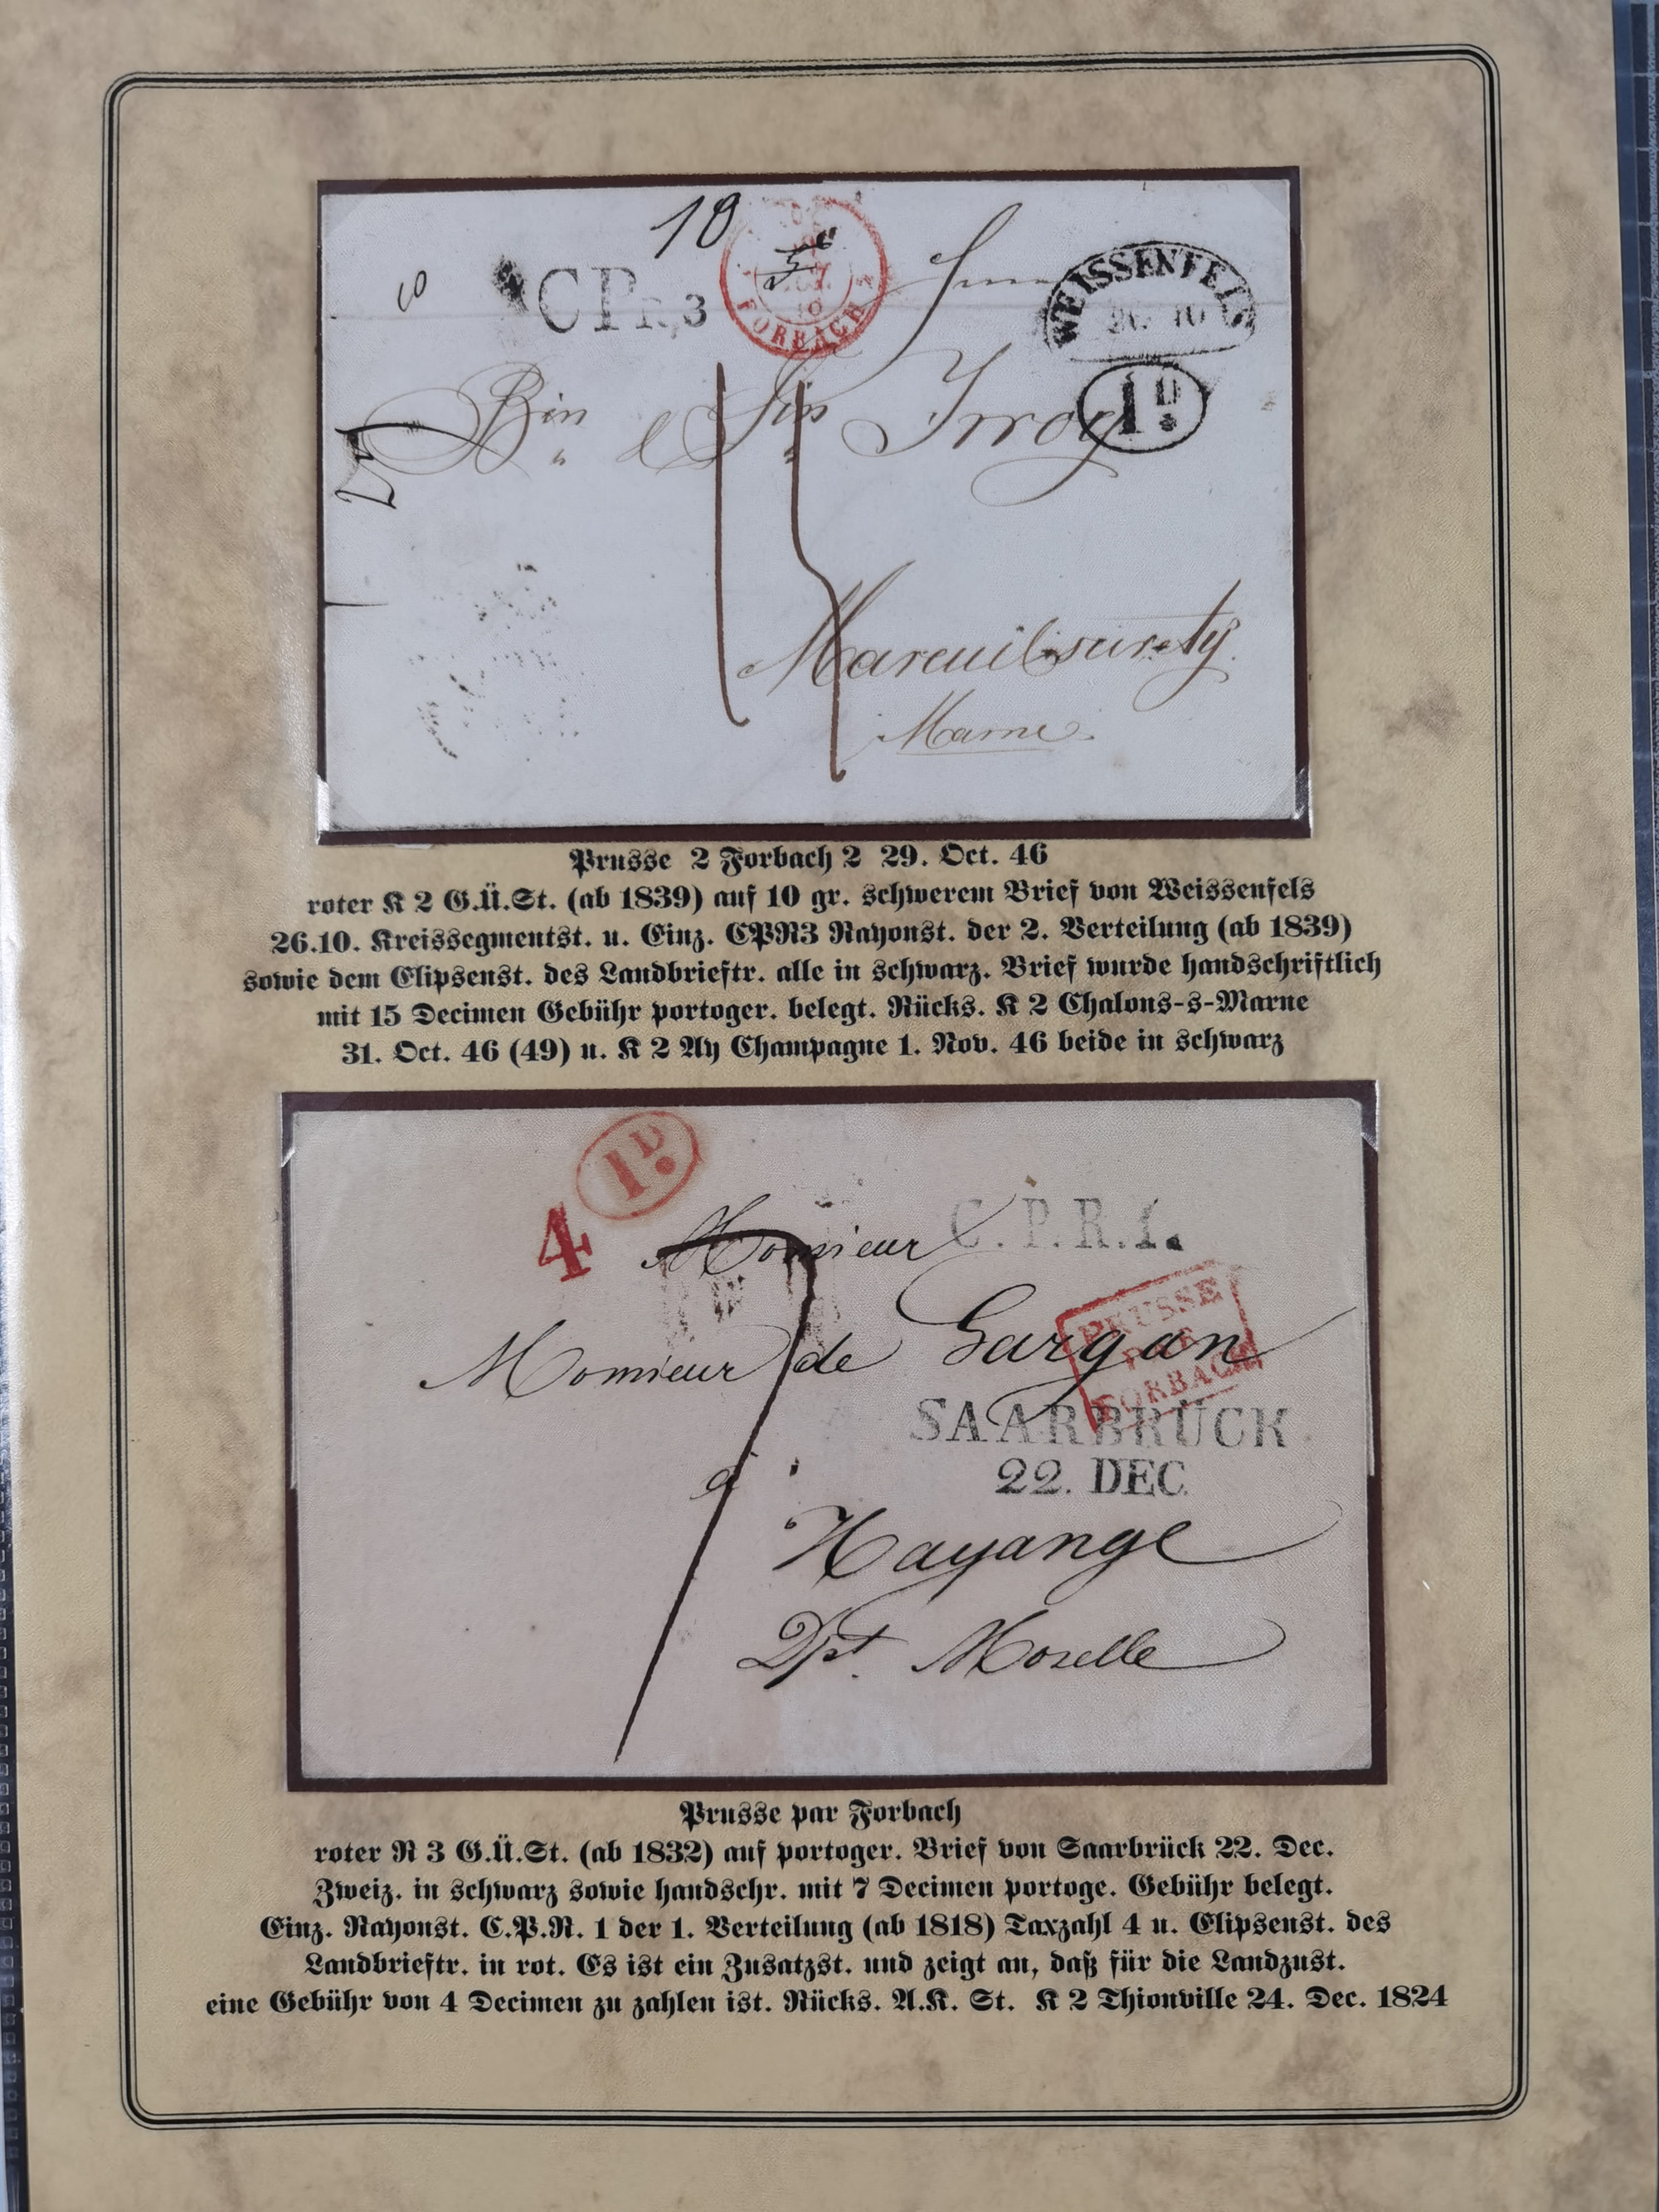 10
CPR3
FORBACH
WEISSENFELS
26 10
1D
Irroy
15
Mareuil sur Ay
Marne
Prusse 2 Forbach 2 29. Oct. 46
roter K 2 G.Ü.St. (ab 1839) auf 10 gr. schwerem Brief von Weissenfels
26.10. Kreissegmentst. u. Einz. CPR3 Rayonst. der 2. Verteilung (ab 1839)
sowie dem Elipsenst. des Landbrieftr. alle in schwarz. Brief wurde handschriftlich
mit 15 Decimen Gebühr portoger. belegt. Rücks. K 2 Chalons-s-Marne
31. Oct. 46 (49) u. K 2 Ay Champagne 1. Nov. 46 beide in schwarz
1D
4
C.P.R.1.
Monsieur
PRUSSE
PAR
FORBACH
Monsieur de Gargan
SAARBRÜCK
22. DEC.
à
Hayange
Dpt. Moselle
7
Prusse par Forbach
roter R 3 G.Ü.St. (ab 1832) auf portoger. Brief von Saarbrück 22. Dec.
Zweiz. in schwarz sowie handschr. mit 7 Decimen portoge. Gebühr belegt.
Einz. Rayonst. C.P.R. 1 der 1. Verteilung (ab 1818) Taxzahl 4 u. Elipsenst. des
Landbrieftr. in rot. Es ist ein Zusatzst. und zeigt an, daß für die Landzust.
eine Gebühr von 4 Decimen zu zahlen ist. Rücks. A.K. St. K 2 Thionville 24. Dec. 1824